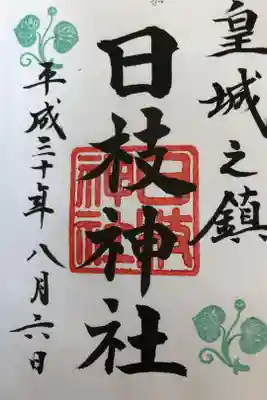 皇城之鎮
日枝神社
日枝神社
平成三十年八月六日